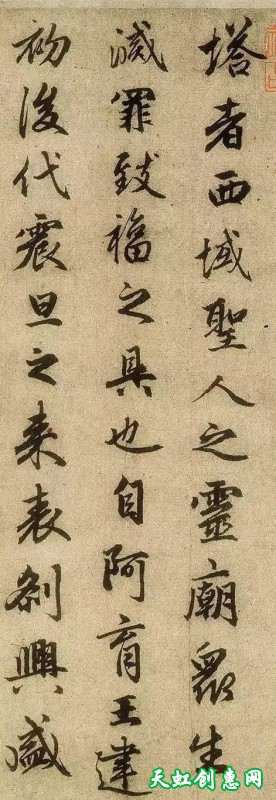 塔者西域聖人之靈廟衆生
滅罪致福之具也自阿育王建
初後代震旦之來表刹興盛
天虹创惠网